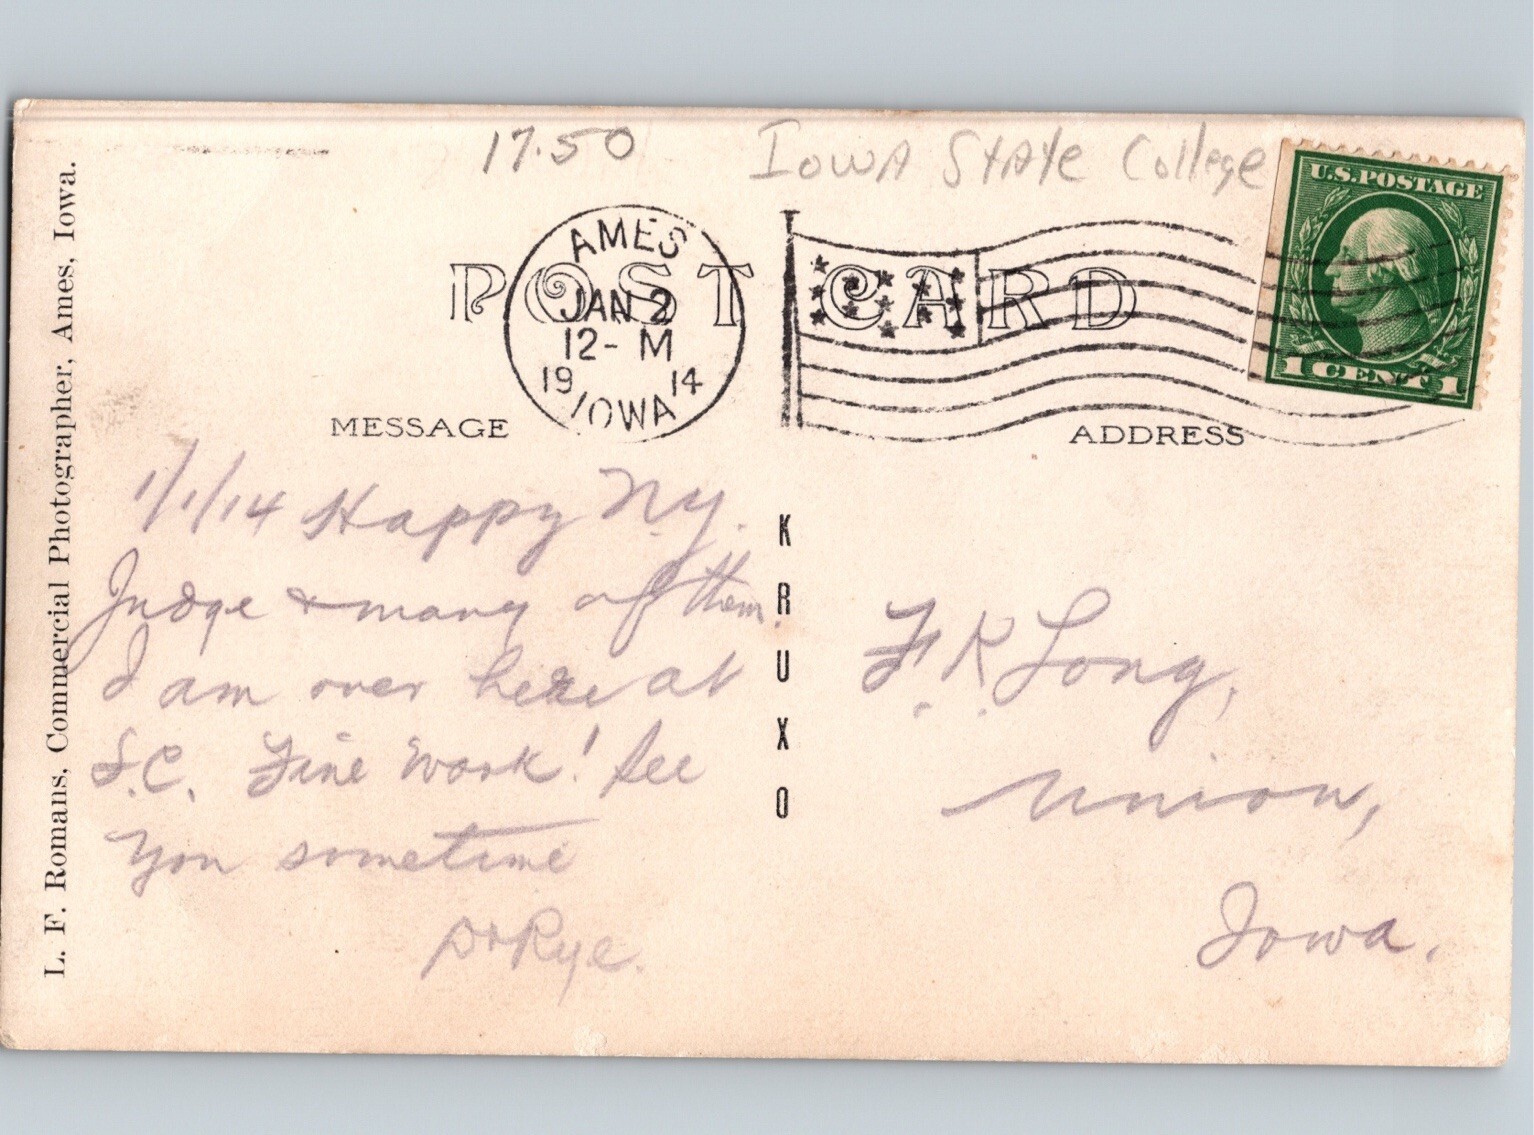 17.50
Iowa State College
U.S. POSTAGE
1 CENT 1
POST CARD
AMES
JAN 2
12- M
19 14
IOWA
MESSAGE
ADDRESS
L. F. Romans, Commercial Photographer, Ames, Iowa.
KRUXO
1/1/14 Happy N.y.
Judge & many of them.
I am over here at
S.C. Fine work! See
you sometime
Rye.
F. R. Long,
Union,
Iowa.